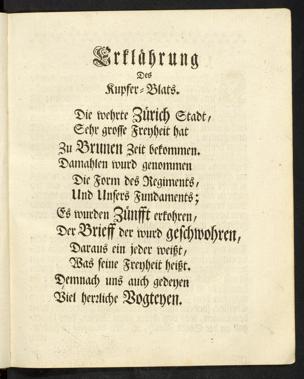 Erklährung
Des
Kupfer-Blats.
Die wehrte Zürich Stadt,
Sehr grosse Freyheit hat
Zu Brunen Zeit bekommen.
Damahlen wurd genommen
Die Form des Regiments,
Und Unsers Fundaments;
Es wurden Zünfft erkohren,
Der Brieff der wurd geschwohren,
Daraus ein jeder weißt,
Was seine Freyheit heißt.
Demnach uns auch gedeyen
Viel herrliche Vogteyen.